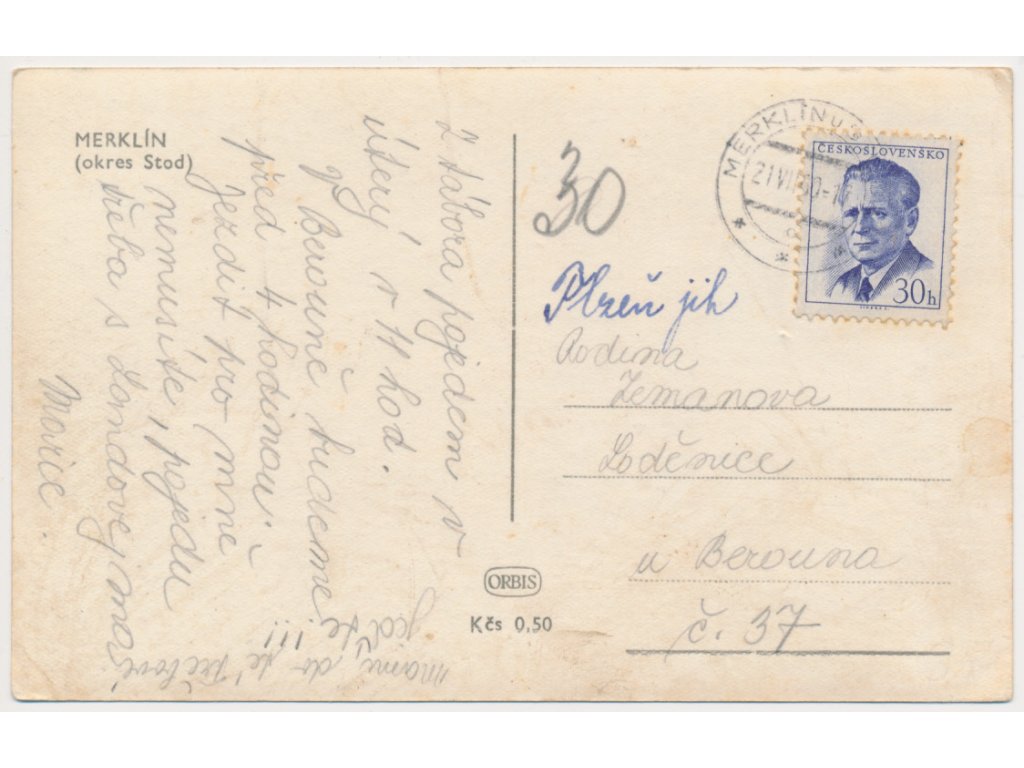 MERKLÍN
(okres Stod)
Z tábora pojedem v
úterý v 11 hod.
V Berouně budeme
před 4 hodinou.
Jezdit pro mně
nemusíte, pojedu
třeba s Landovej
Marie.
mami do té
jeďte!!!
ORBIS
Kčs 0,50
30
MERKLÍN U
21 VI 60-16
ČESKOSLOVENSKO
30h
Plzeň jih
Rodina
Zemanova
Loděnice
u Berouna
č. 37